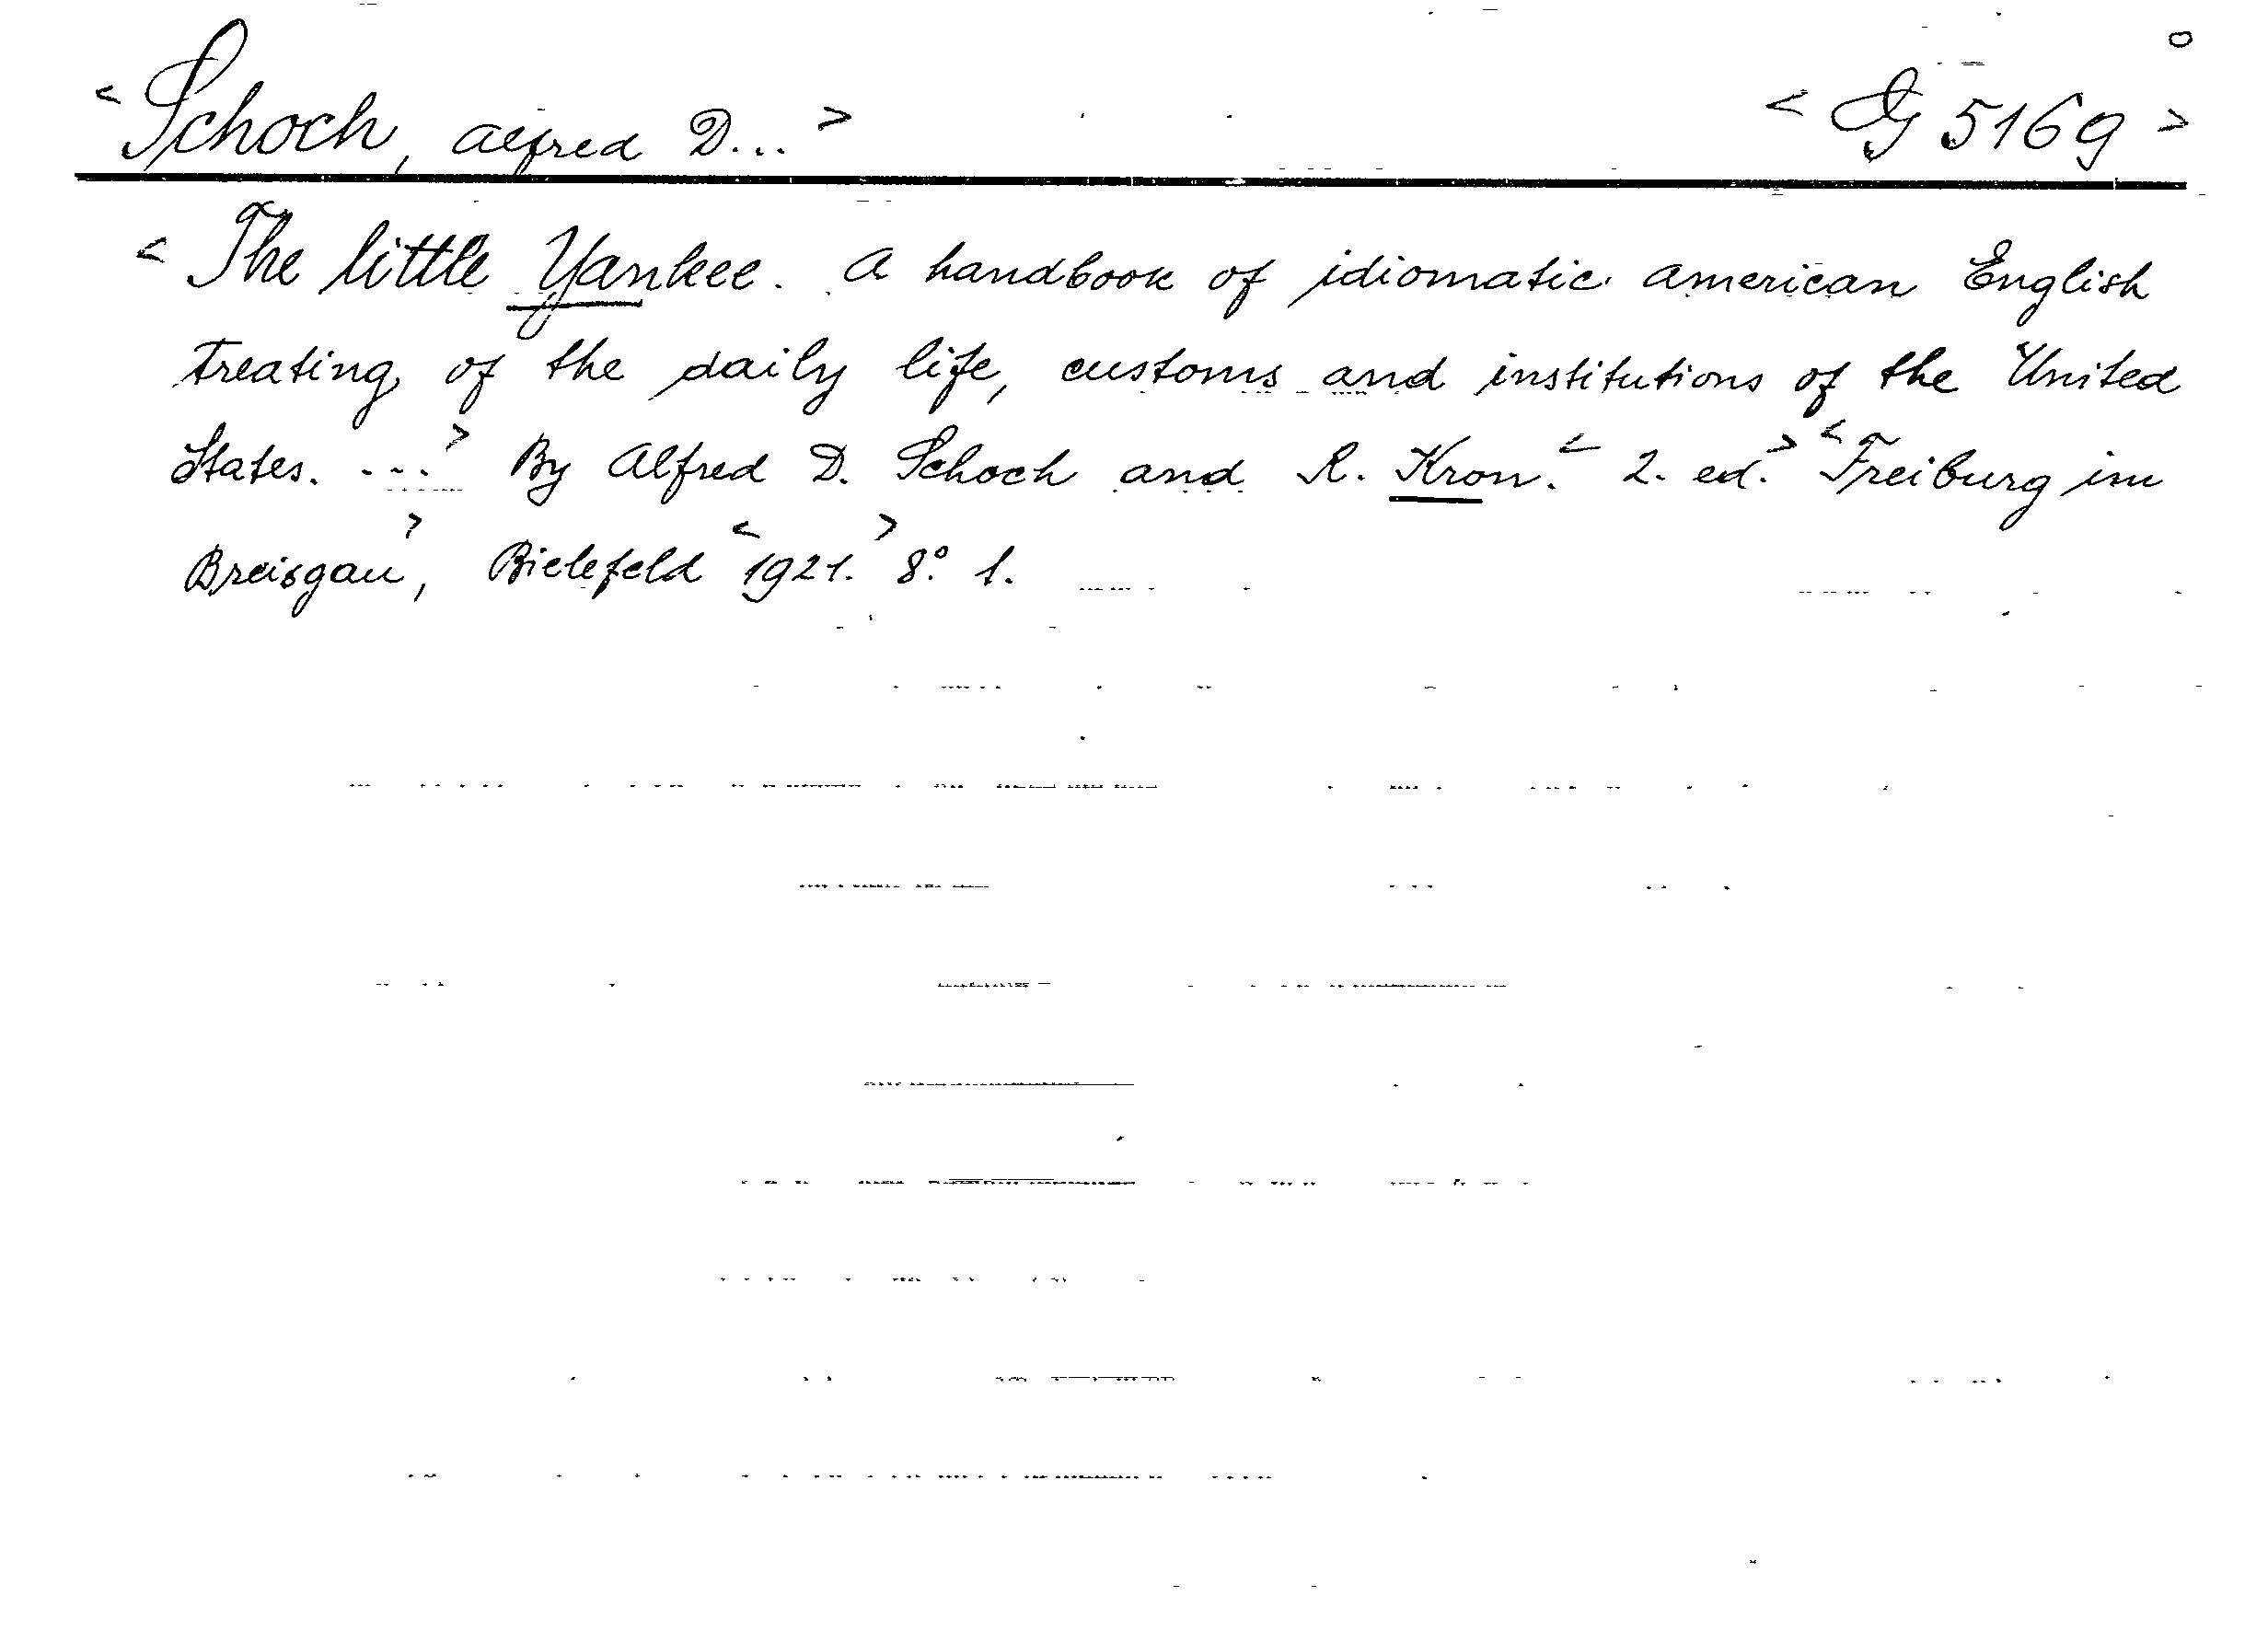 <Schoch, Alfred D...> <G 5169>
<The little Yankee. A handbook of idiomatic American English
treating of the daily life, customs and institutions of the United
States. ...> By Alfred D. Schoch and R. Kron. <2. ed.> <Freiburg im
Breisgau>, Bielefeld <1921.> 8° 1.